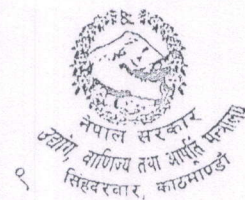 नेपाल सरकार
उद्योग, वाणिज्य तथा आपूर्ति मन्त्रालय
सिंहदरवार, काठमाण्डौ
९